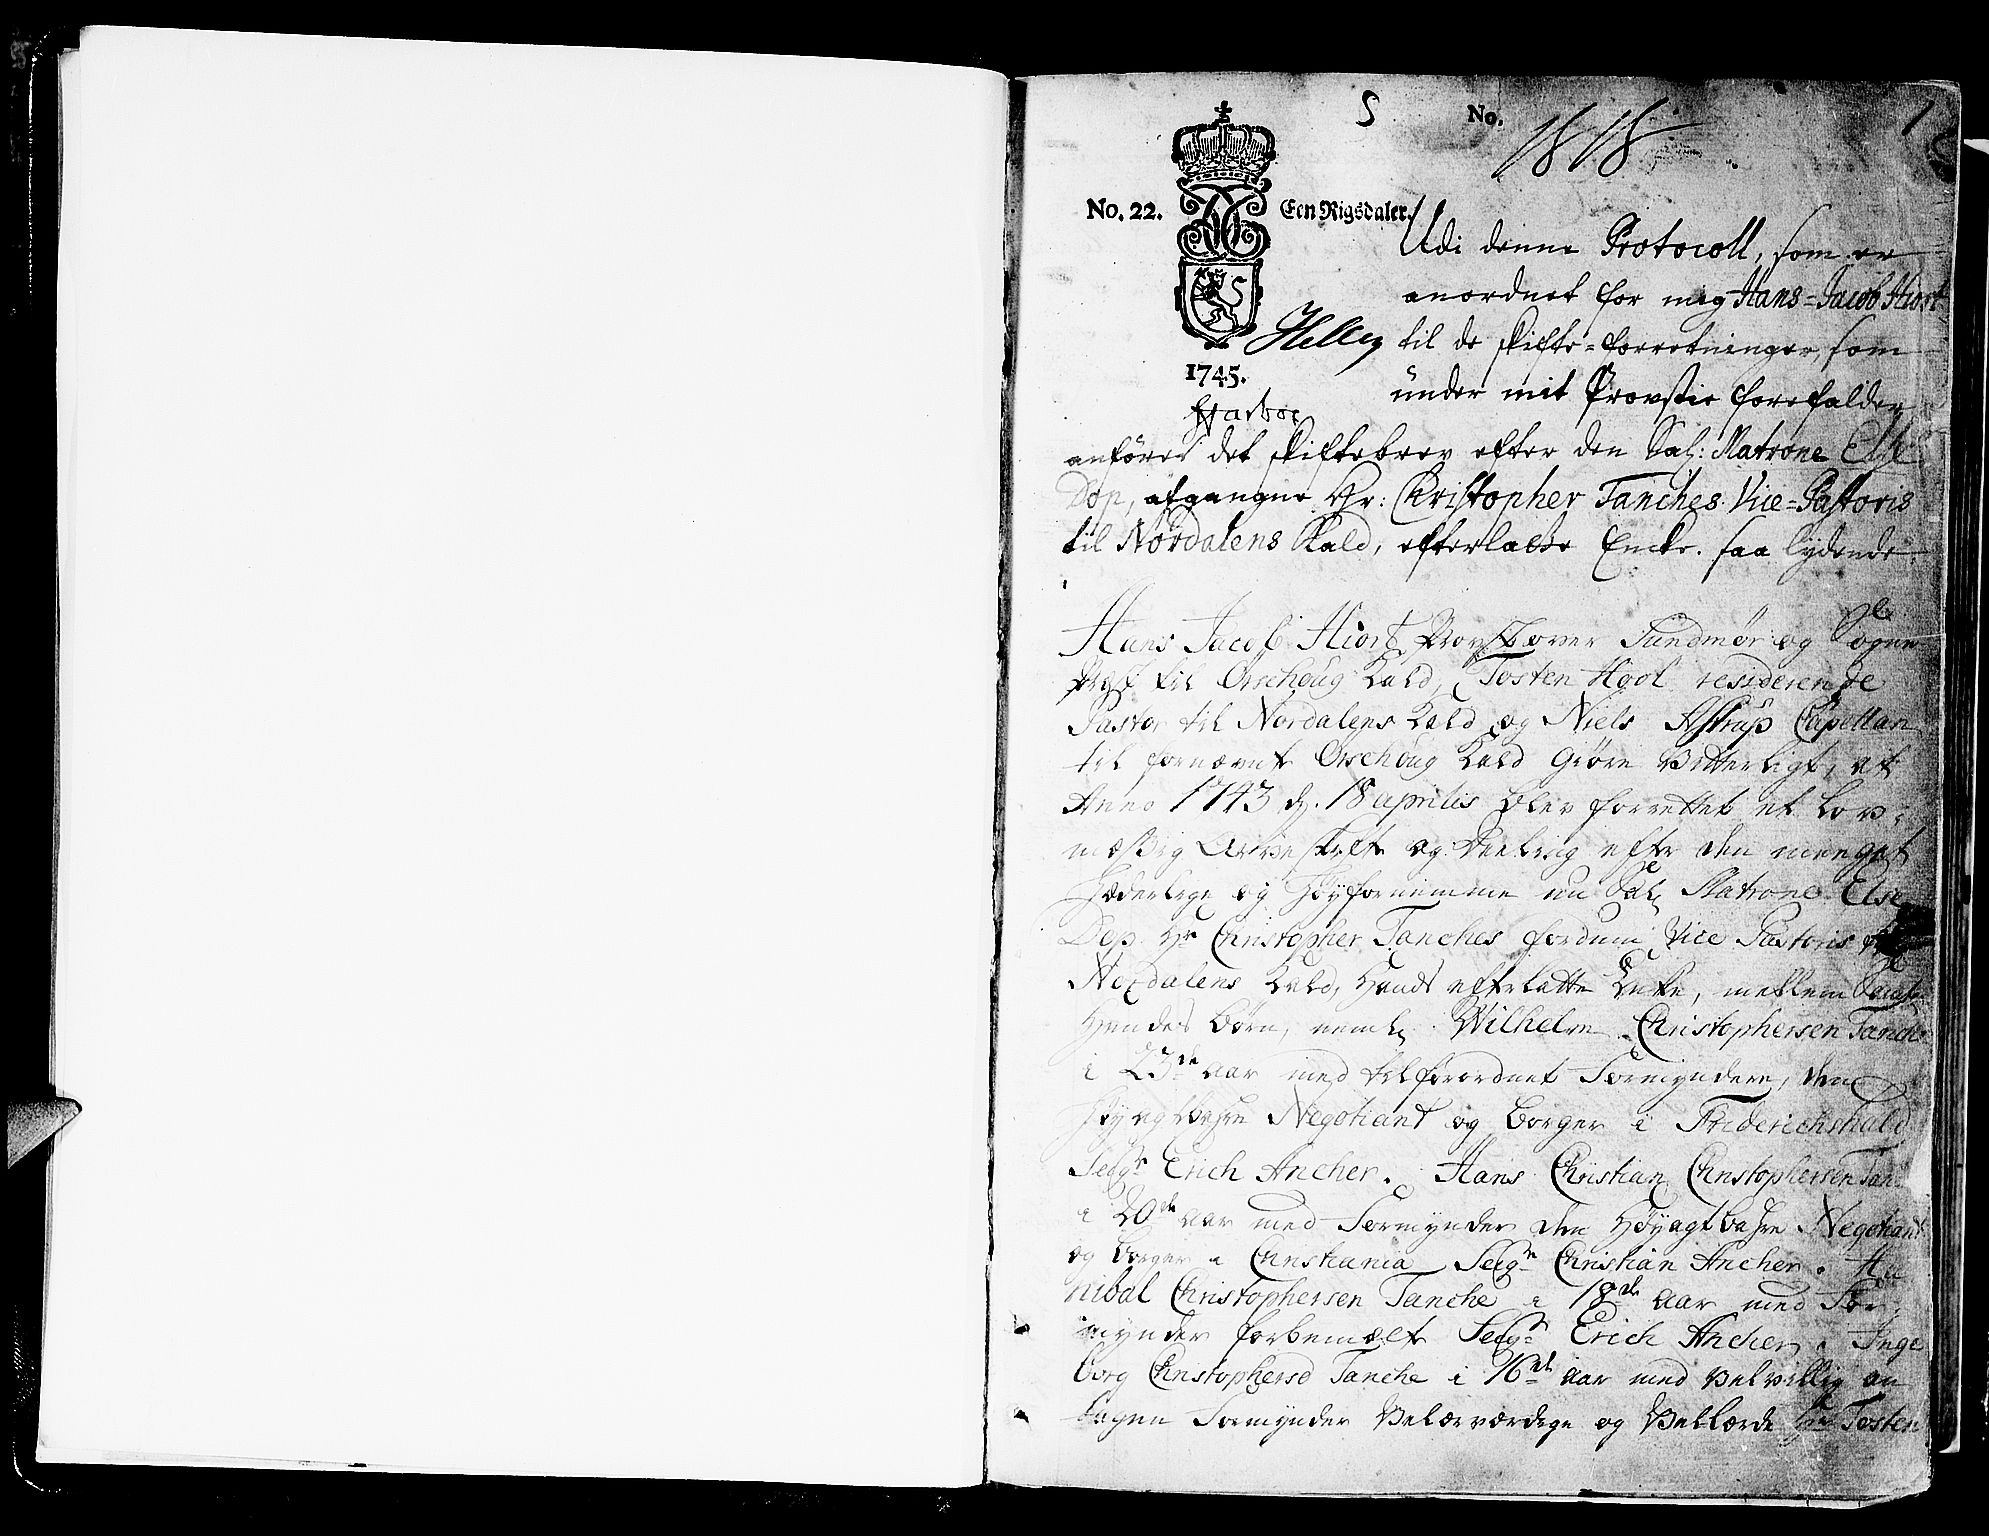 S No. 1818 1
No. 22. Een Rigsdaler.
1745.
Udi denne Protocoll, som er
anordnet for mig Hans-Jacob Hiort
til de skifte-forretninger, som
under mit Provstie forefalder
anføres det skiftebrev efter den Sal: Matrone Else
Dop, afgangne Hr: Christopher Tanches Vice-Pastoris
til Nordalens Kald, efterladte Encke. saa lydende
Hans Jacob Hiort Provst over Sundmør og Sogne
Præst til Ørschoug Kald, Tosten Hoot residerende
Pastor til Nordalens Kald og Niels Astrup Capellan
til fornævnte Ørschoug Kald Giøre vitterligt, at
Anno 1743 d. 18 aprilis blev forrettet et Lov-
mæssig Arveskifte og Deeling efter den meeget
Hæderlige og Høyfornemme nu Sal Matrone Else
Dop Hr Christopher Tanches fordum Vice Pastoris
Nordalens Kald, Hands efterlatte Enke, mellem
Hendes Børn, neml. Wilhelm Christophersen Tanche
i 23de aar med tilforordnet Formyndere, den
Høyagtbahre Negotiant og borger i Friderichshald
Seigr Erich Ancher. Hans Christian Christophersen Tan-
i 20de aar med Formynder den Høyagtbahre Negotiant
og borger i Christiania Seigr Christian Ancher. Ha
nibal Christophersen Tanche i 18de aar med For-
mynder forbemelte Seigr Erich Ancher. Inge
borg Christophersd Tanche i 16de aar med velvillig an
tagen Formynder Velærværdige og Vellærde Hr Tosten